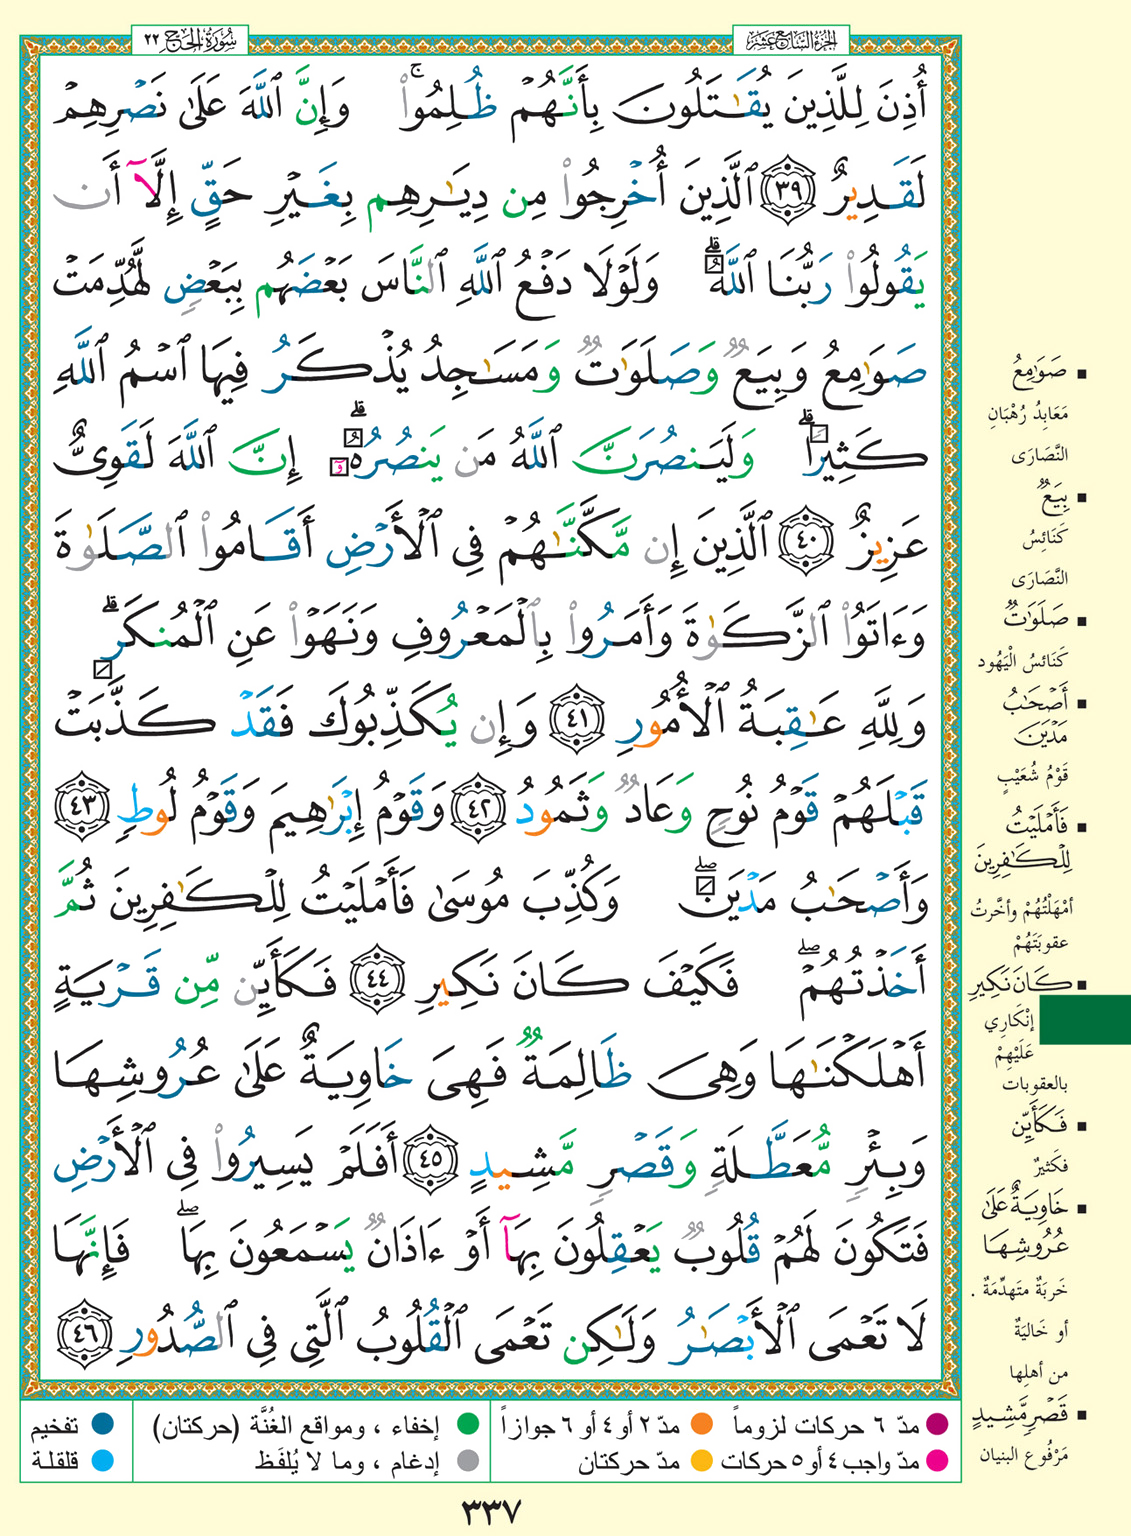 الجزء السابع عشر
سورة الحج ٢٢
أُذِنَ لِلَّذِينَ يُقَٰتَلُونَ بِأَنَّهُمْ ظُلِمُوا۟ ۚ وَإِنَّ ٱللَّهَ عَلَىٰ نَصْرِهِمْ
لَقَدِيرٌ ٣٩ ٱلَّذِينَ أُخْرِجُوا۟ مِن دِيَٰرِهِم بِغَيْرِ حَقٍّ إِلَّآ أَن
يَقُولُوا۟ رَبُّنَا ٱللَّهُ ۗ وَلَوْلَا دَفْعُ ٱللَّهِ ٱلنَّاسَ بَعْضَهُم بِبَعْضٍ لَّهُدِّمَتْ
صَوَٰمِعُ وَبِيَعٌ وَصَلَوَٰتٌ وَمَسَٰجِدُ يُذْكَرُ فِيهَا ٱسْمُ ٱللَّهِ
كَثِيرًا ۗ وَلَيَنصُرَنَّ ٱللَّهُ مَن يَنصُرُهُۥٓ ۗ إِنَّ ٱللَّهَ لَقَوِىٌّ
عَزِيزٌ ٤٠ ٱلَّذِينَ إِن مَّكَّنَّٰهُمْ فِى ٱلْأَرْضِ أَقَامُوا۟ ٱلصَّلَوٰةَ
وَءَاتَوُا۟ ٱلزَّكَوٰةَ وَأَمَرُوا۟ بِٱلْمَعْرُوفِ وَنَهَوْا۟ عَنِ ٱلْمُنكَرِ ۗ
وَلِلَّهِ عَٰقِبَةُ ٱلْأُمُورِ ٤١ وَإِن يُكَذِّبُوكَ فَقَدْ كَذَّبَتْ
قَبْلَهُمْ قَوْمُ نُوحٍ وَعَادٌ وَثَمُودُ ٤٢ وَقَوْمُ إِبْرَٰهِيمَ وَقَوْمُ لُوطٍ ٤٣
وَأَصْحَٰبُ مَدْيَنَ ۖ وَكُذِّبَ مُوسَىٰ فَأَمْلَيْتُ لِلْكَٰفِرِينَ ثُمَّ
أَخَذْتُهُمْ ۖ فَكَيْفَ كَانَ نَكِيرِ ٤٤ فَكَأَيِّن مِّن قَرْيَةٍ
أَهْلَكْنَٰهَا وَهِىَ ظَالِمَةٌ فَهِىَ خَاوِيَةٌ عَلَىٰ عُرُوشِهَا
وَبِئْرٍ مُّعَطَّلَةٍ وَقَصْرٍ مَّشِيدٍ ٤٥ أَفَلَمْ يَسِيرُوا۟ فِى ٱلْأَرْضِ
فَتَكُونَ لَهُمْ قُلُوبٌ يَعْقِلُونَ بِهَآ أَوْ ءَاذَانٌ يَسْمَعُونَ بِهَا ۖ فَإِنَّهَا
لَا تَعْمَى ٱلْأَبْصَٰرُ وَلَٰكِن تَعْمَى ٱلْقُلُوبُ ٱلَّتِى فِى ٱلصُّدُورِ ٤٦
صَوَٰمِعُ
مَعَابِدُ رُهْبَانِ
النَّصَارَى
بِيَعٌ
كَنَائِسُ
النَّصَارَى
صَلَوَٰتٌ
كَنَائِسُ الْيَهُود
أَصْحَٰبُ
مَدْيَنَ
قَوْمُ شُعَيْبٍ
فَأَمْلَيْتُ
لِلْكَٰفِرِينَ
أمْهَلْتُهُمْ وأخَّرتُ
عقوبَتَهُمْ
كَانَ نَكِيرِ
إنْكَارِي
عَلَيْهِمْ
بالعقوبات
فَكَأَيِّن
فكَثيرٌ
خَاوِيَةٌ عَلَىٰ
عُرُوشِهَا
خَرِبَةٌ متَهدِّمَةٌ .
أو خَاليَةٌ
من أهلِها
قَصْرٍ مَّشِيدٍ
مَرْفُوع البنيان
مدّ ٦ حركات لزوماً مدّ ٢ أو ٤ أو ٦ جوازاً إخفاء ، ومواقع الغُنَّة (حركتان) تفخيم
مدّ واجب ٤ أو ٥ حركات مدّ حركتان إدغام ، وما لا يُلفَظ قلقلة
٣٣٧